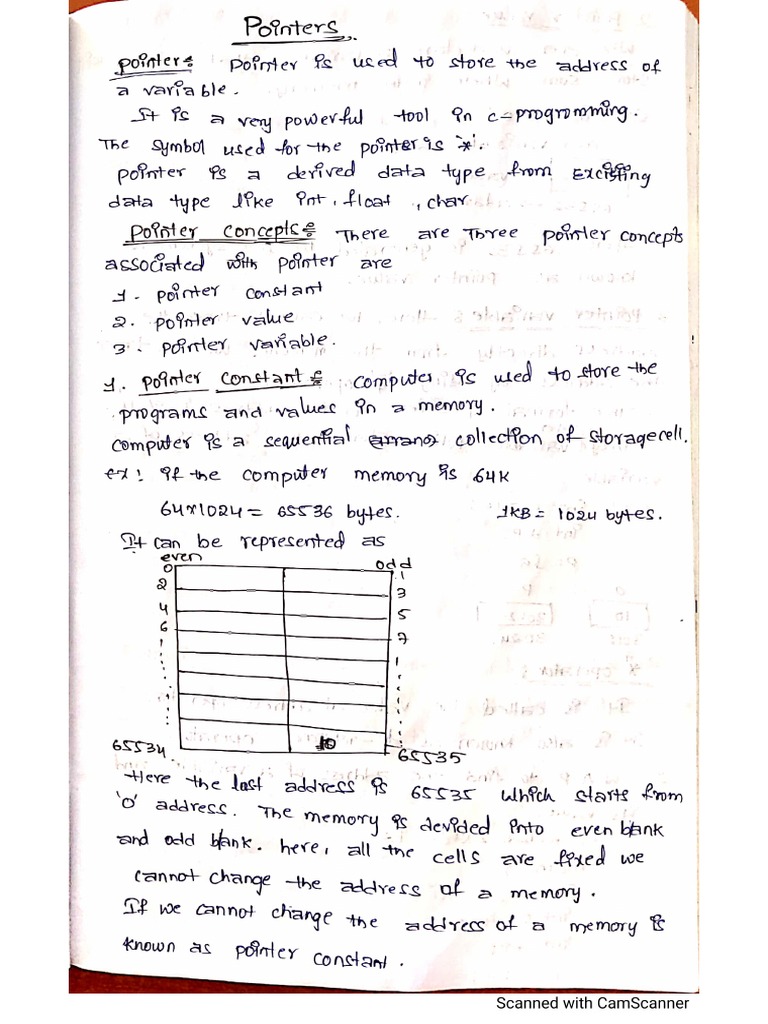 Pointers
pointer:- Pointer is used to store the address of
a variable.
It is a very powerful tool in c-programming.
The symbol used for the pointer is '*'.
pointer is a derived data type from Excisting
data type like int, float, char
Pointer concepts:- There are Three pointer concepts
associated with pointer are
1. pointer constant
2. pointer value
3. pointer variable.
1. pointer constant:- computer is used to store the
programs and values in a memory.
computer is a sequential collection of storagecell.
ex: if the computer memory is 64K
64*1024 = 65536 bytes. 1KB = 1024 bytes.
It can be represented as
even odd
0 1
2 3
4 5
6 7
65534 10 65535
Here the last address is 65535 which starts from
'0' address. The memory is devided into even blank
and odd blank. here, all the cells are fixed we
cannot change the address of a memory.
If we cannot change the address of a memory is
known as pointer constant.
Scanned with CamScanner